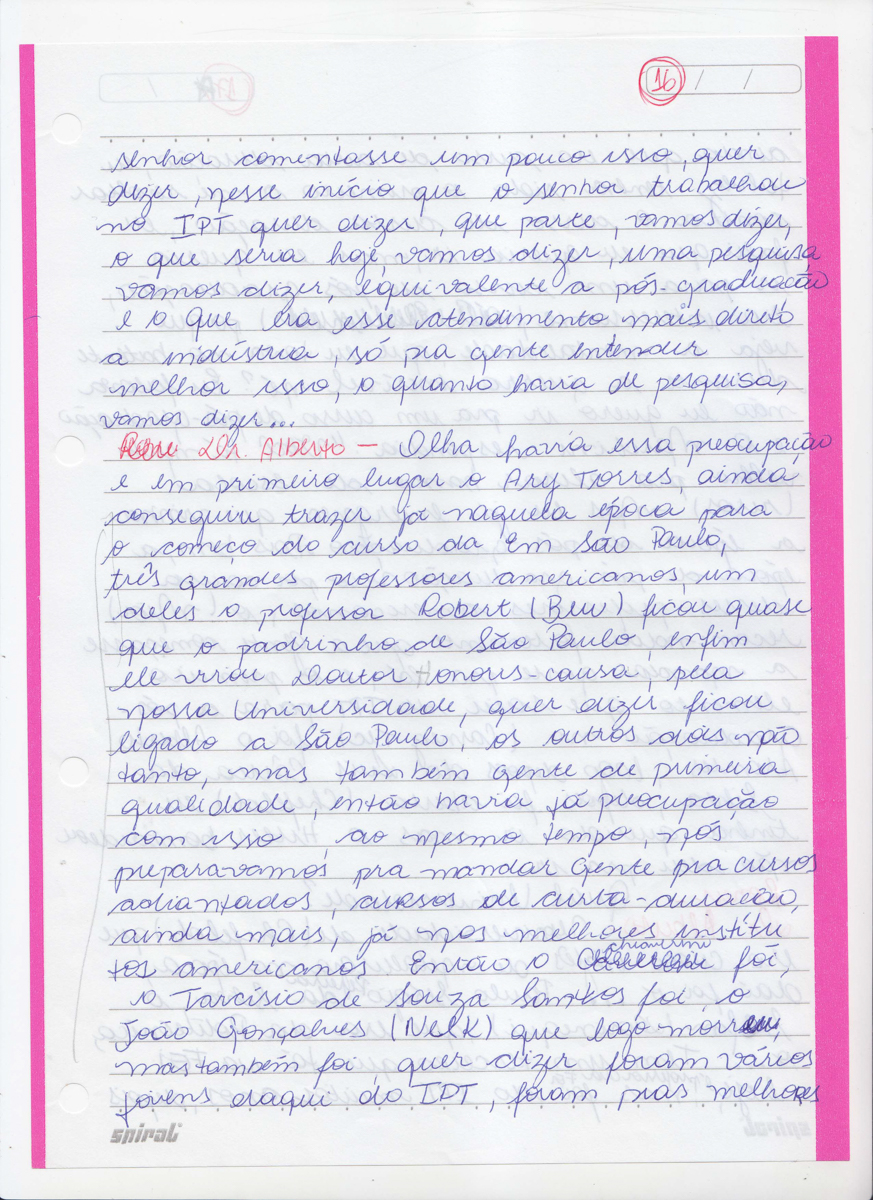 16 / /
senhor comentasse um pouco isso, quer
dizer, nesse início que o senhor trabalhou
no IPT quer dizer, que parte, vamos dizer,
o que seria hoje, vamos dizer, uma pesquisa
vamos dizer, equivalente a pós-graduação
e o que era esse atendimento mais direto
a indústria, só pra gente entender
melhor isso, o quanto havia de pesquisa,
vamos dizer...
Dr. Alberto — Olha havia essa preocupação
e em primeiro lugar o Ary Torres, ainda
conseguiu trazer já naquela época para
o começo do curso da Em São Paulo,
três grandes professores americanos, um
deles o professor Robert (Bew) ficou quase
que o padrinho de São Paulo, enfim
ele virou Doutor Honoris-causa, pela
nossa Universidade, quer dizer ficou
ligado a São Paulo, os outros dois não
tanto, mas também gente de primeira
qualidade, então havia já preocupação
com isso, ao mesmo tempo, nós
preparavamos pra mandar gente pra cursos
adiantados, cursos de curta-duração,
ainda mais, já nos melhores institu
tos americanos Então o foi,
o Tarcísio de Souza Santos foi, o
João Gonçalves (Nelk) que logo morreu,
mas também foi, quer dizer foram vários
jovens daqui do IPT, foram pras melhores
spiral